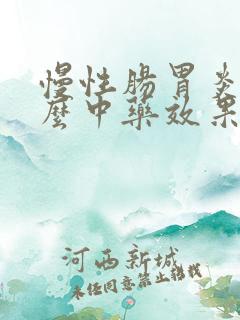 慢性肠胃炎
麼中藥效果
河西新城
未经同意禁止转载